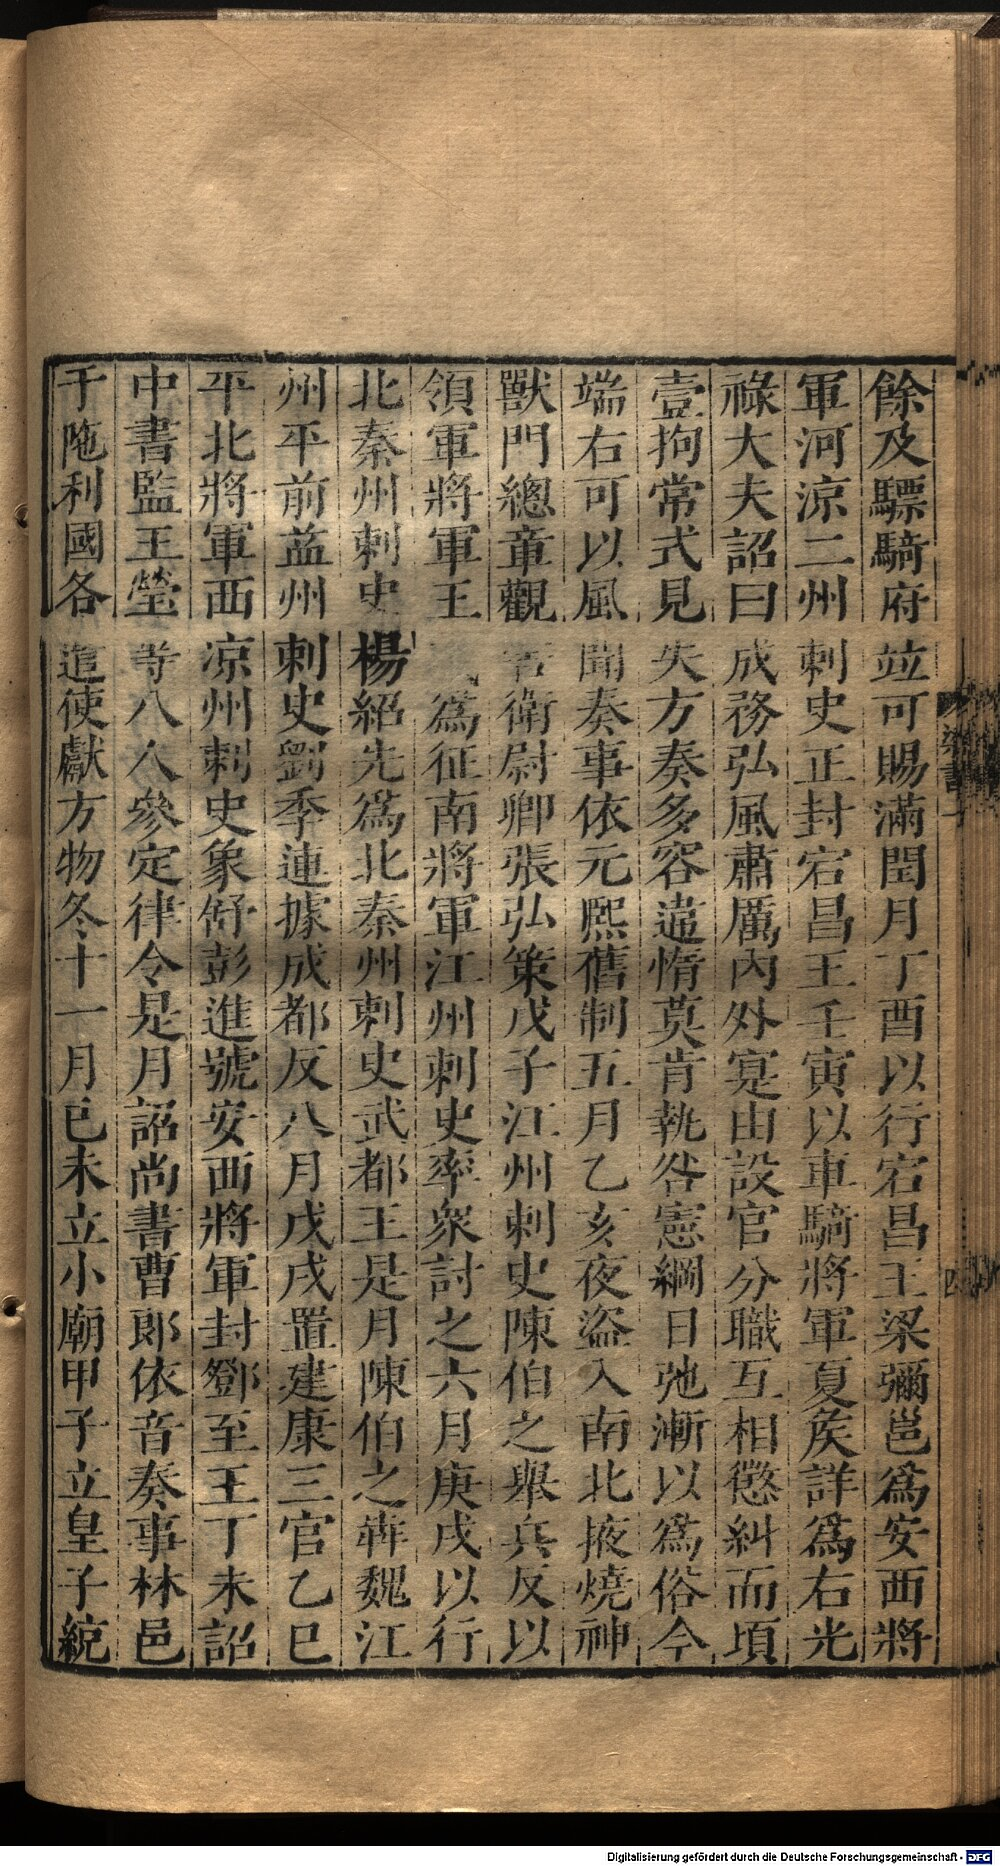 餘及驃騎府竝可賜滿閏月丁酉以行宕昌王梁彌邕爲安西將
軍河涼二州刺史正封宕昌王壬寅以車騎將軍夏矦詳爲右光
祿大夫詔曰成務弘風肅厲內外寔由設官分職互相懲糾而頃
壹拘常式見失方奏多容違惰莫肯執咎憲綱日弛漸以爲俗今
端右可以風聞奏事依元熙舊制五月乙亥夜盜入南北掖燒神
獸門總章觀害衛尉卿張弘策戊子江州刺史陳伯之舉兵反以
領軍將軍王爲征南將軍江州刺史率衆討之六月庚戌以行
北秦州刺史楊紹先爲北秦州刺史武都王是月陳伯之犇魏江
州平前益州刺史劉季連據成都反八月戊戌置建康三官乙巳
平北將軍西涼州刺史象舒彭進號安西將軍封鄧至王丁未詔
中書監王瑩等八人參定律令是月詔尚書曹郎依音奏事林邑
干陁利國各遣使獻方物冬十一月己未立小廟甲子立皇子統
梁書
四
Digitalisierung gefördert durch die Deutsche Forschungsgemeinschaft - DFG